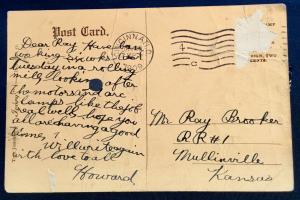 Post Card.
Dear Ray, Have been
working six weeks last
Tuesday in a rolling
mill looking after
the motors and arc
lamps. Like the job
real well. hope you
all are having a good
time. Will write again
with love to all
Howard
4
C
Mr. Ray Brooker
RR#1
Mullinville
Kansas